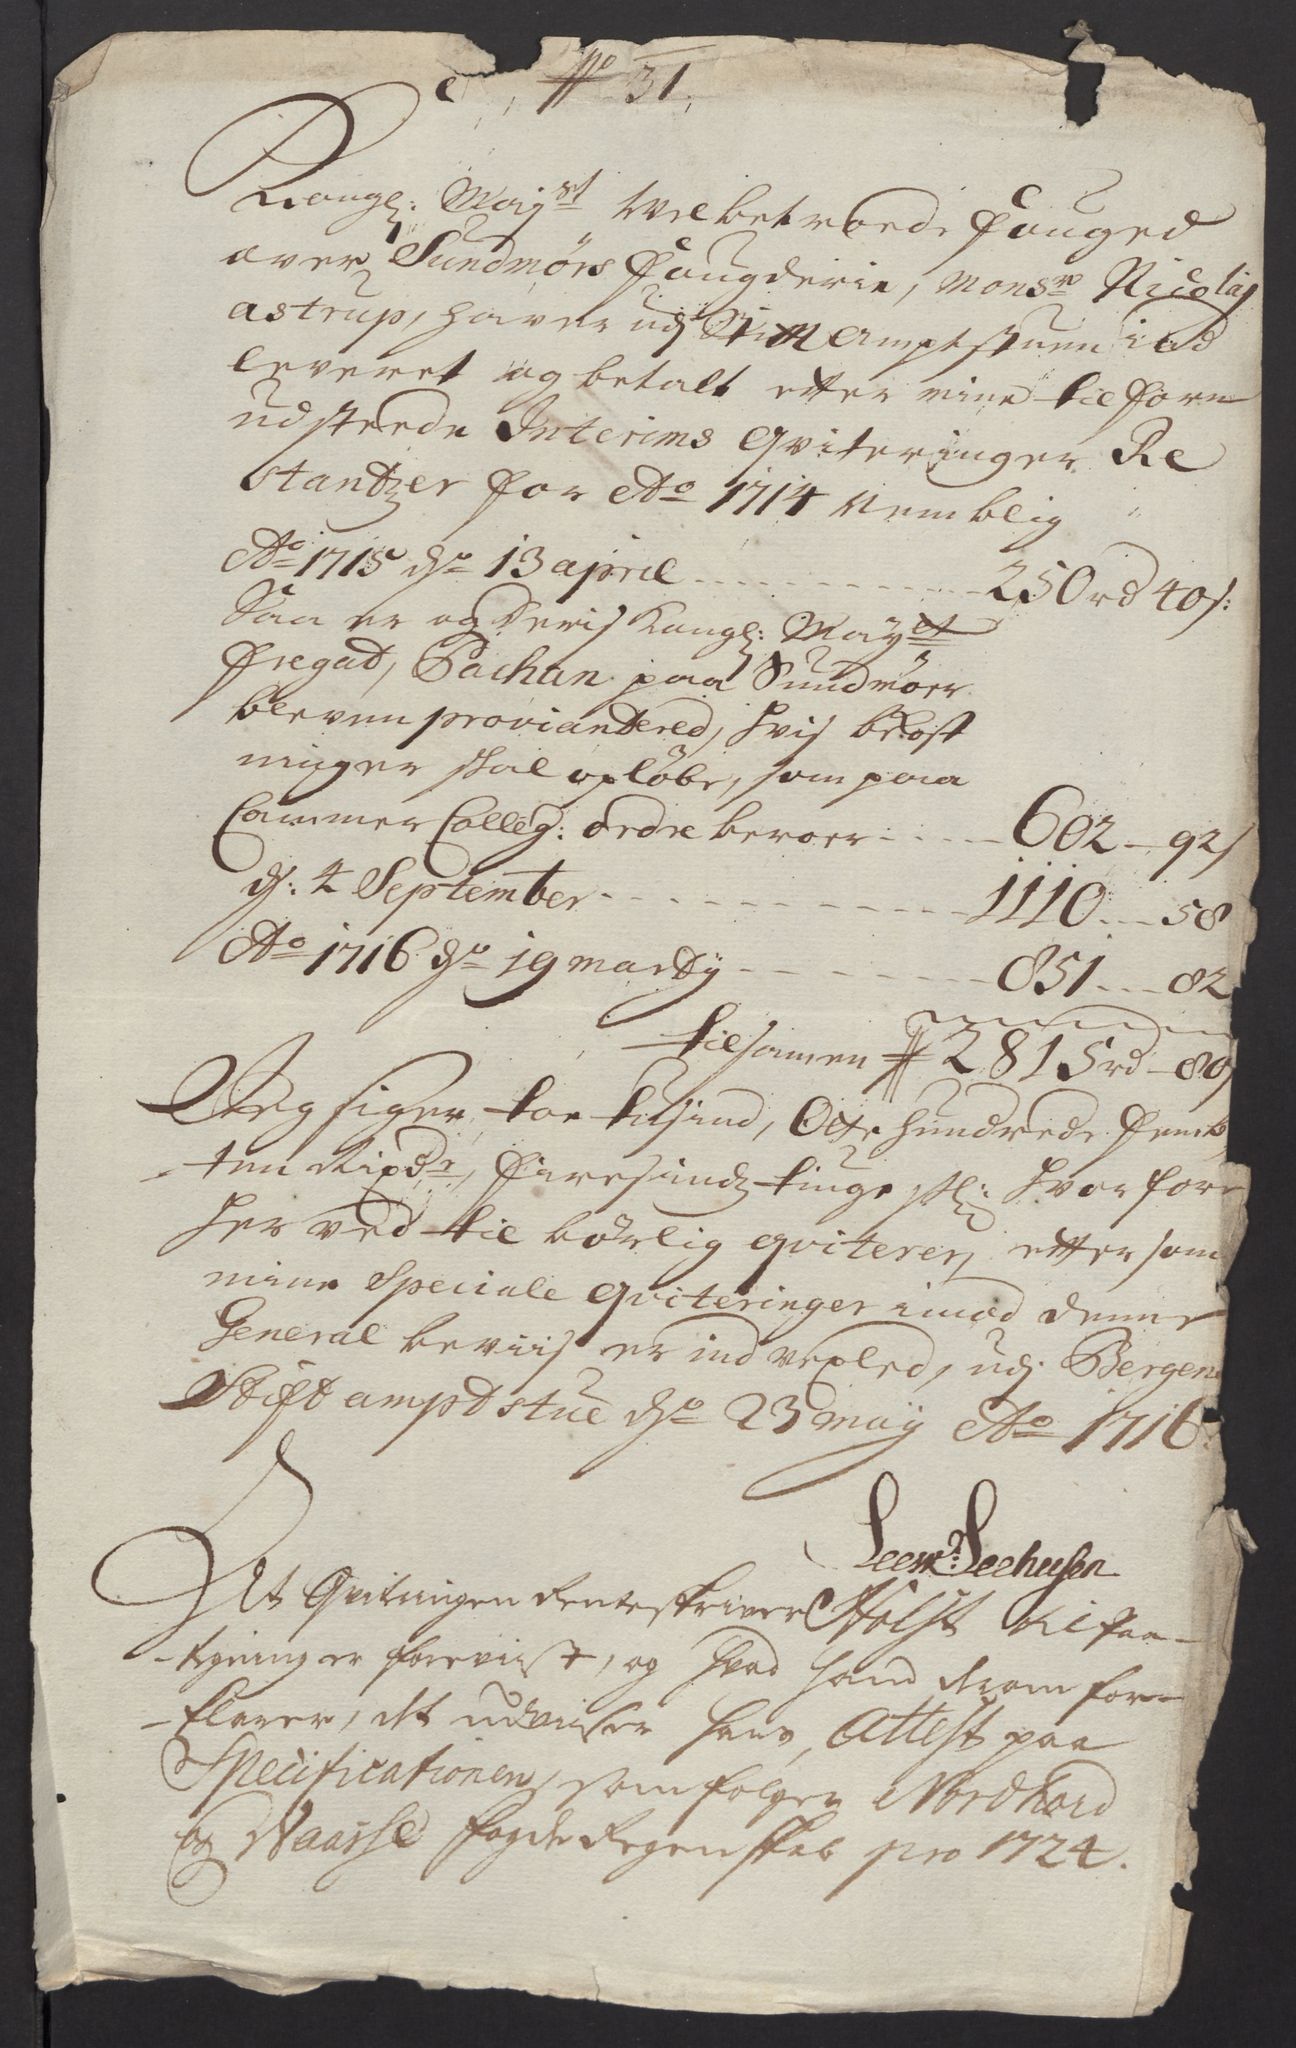 No 31.
Kongl: Mayst Welbetroede Fouged
over Sundmörs Fougderie, Monsr Nicolaj
astrup, haver udj Stift Amptstuen ind
leveret og betalt etter mine tilforn
udsteede Interims qviteringer Re
standtzer for Ao 1714 Nemblig
Ao 1715 dn 13 april . . . . . 250 rd 40 s:
Saa er og deris Kongl: Mayet
Fregad, Pachan paa Sundmöer
bleven proviantered, hvis bekost
ninger skal opløbe, som paa
Cammer Colleg: ordre beroer . . . . 602 - 92 s
d: 4 September . . . . . 1110 - 58
Ao 1716 dn 19 marty . . . . 851 - 82
tilsamen 2815 rd - 80 s
Jeg siger toe tusind, Otte hundrede femb
ten Rixdr, firesindz tiuge sk: hvorfore
herved til börlig qviterer, etter som
mine Speciale qviteringer imod denne
General beviis er indvexled, udj Bergens
Stift ampdstue dn 23 may Ao 1716.
Leew: Leehusen
At Qvitringen Renteskriver Holst til paa-
tegning er foreviist, og hvad hand derom for-
klarer, det udviiser hans Attest paa
Specificationen, som følger Nordhord
og Waasse fogde Regenskab pro 1724.